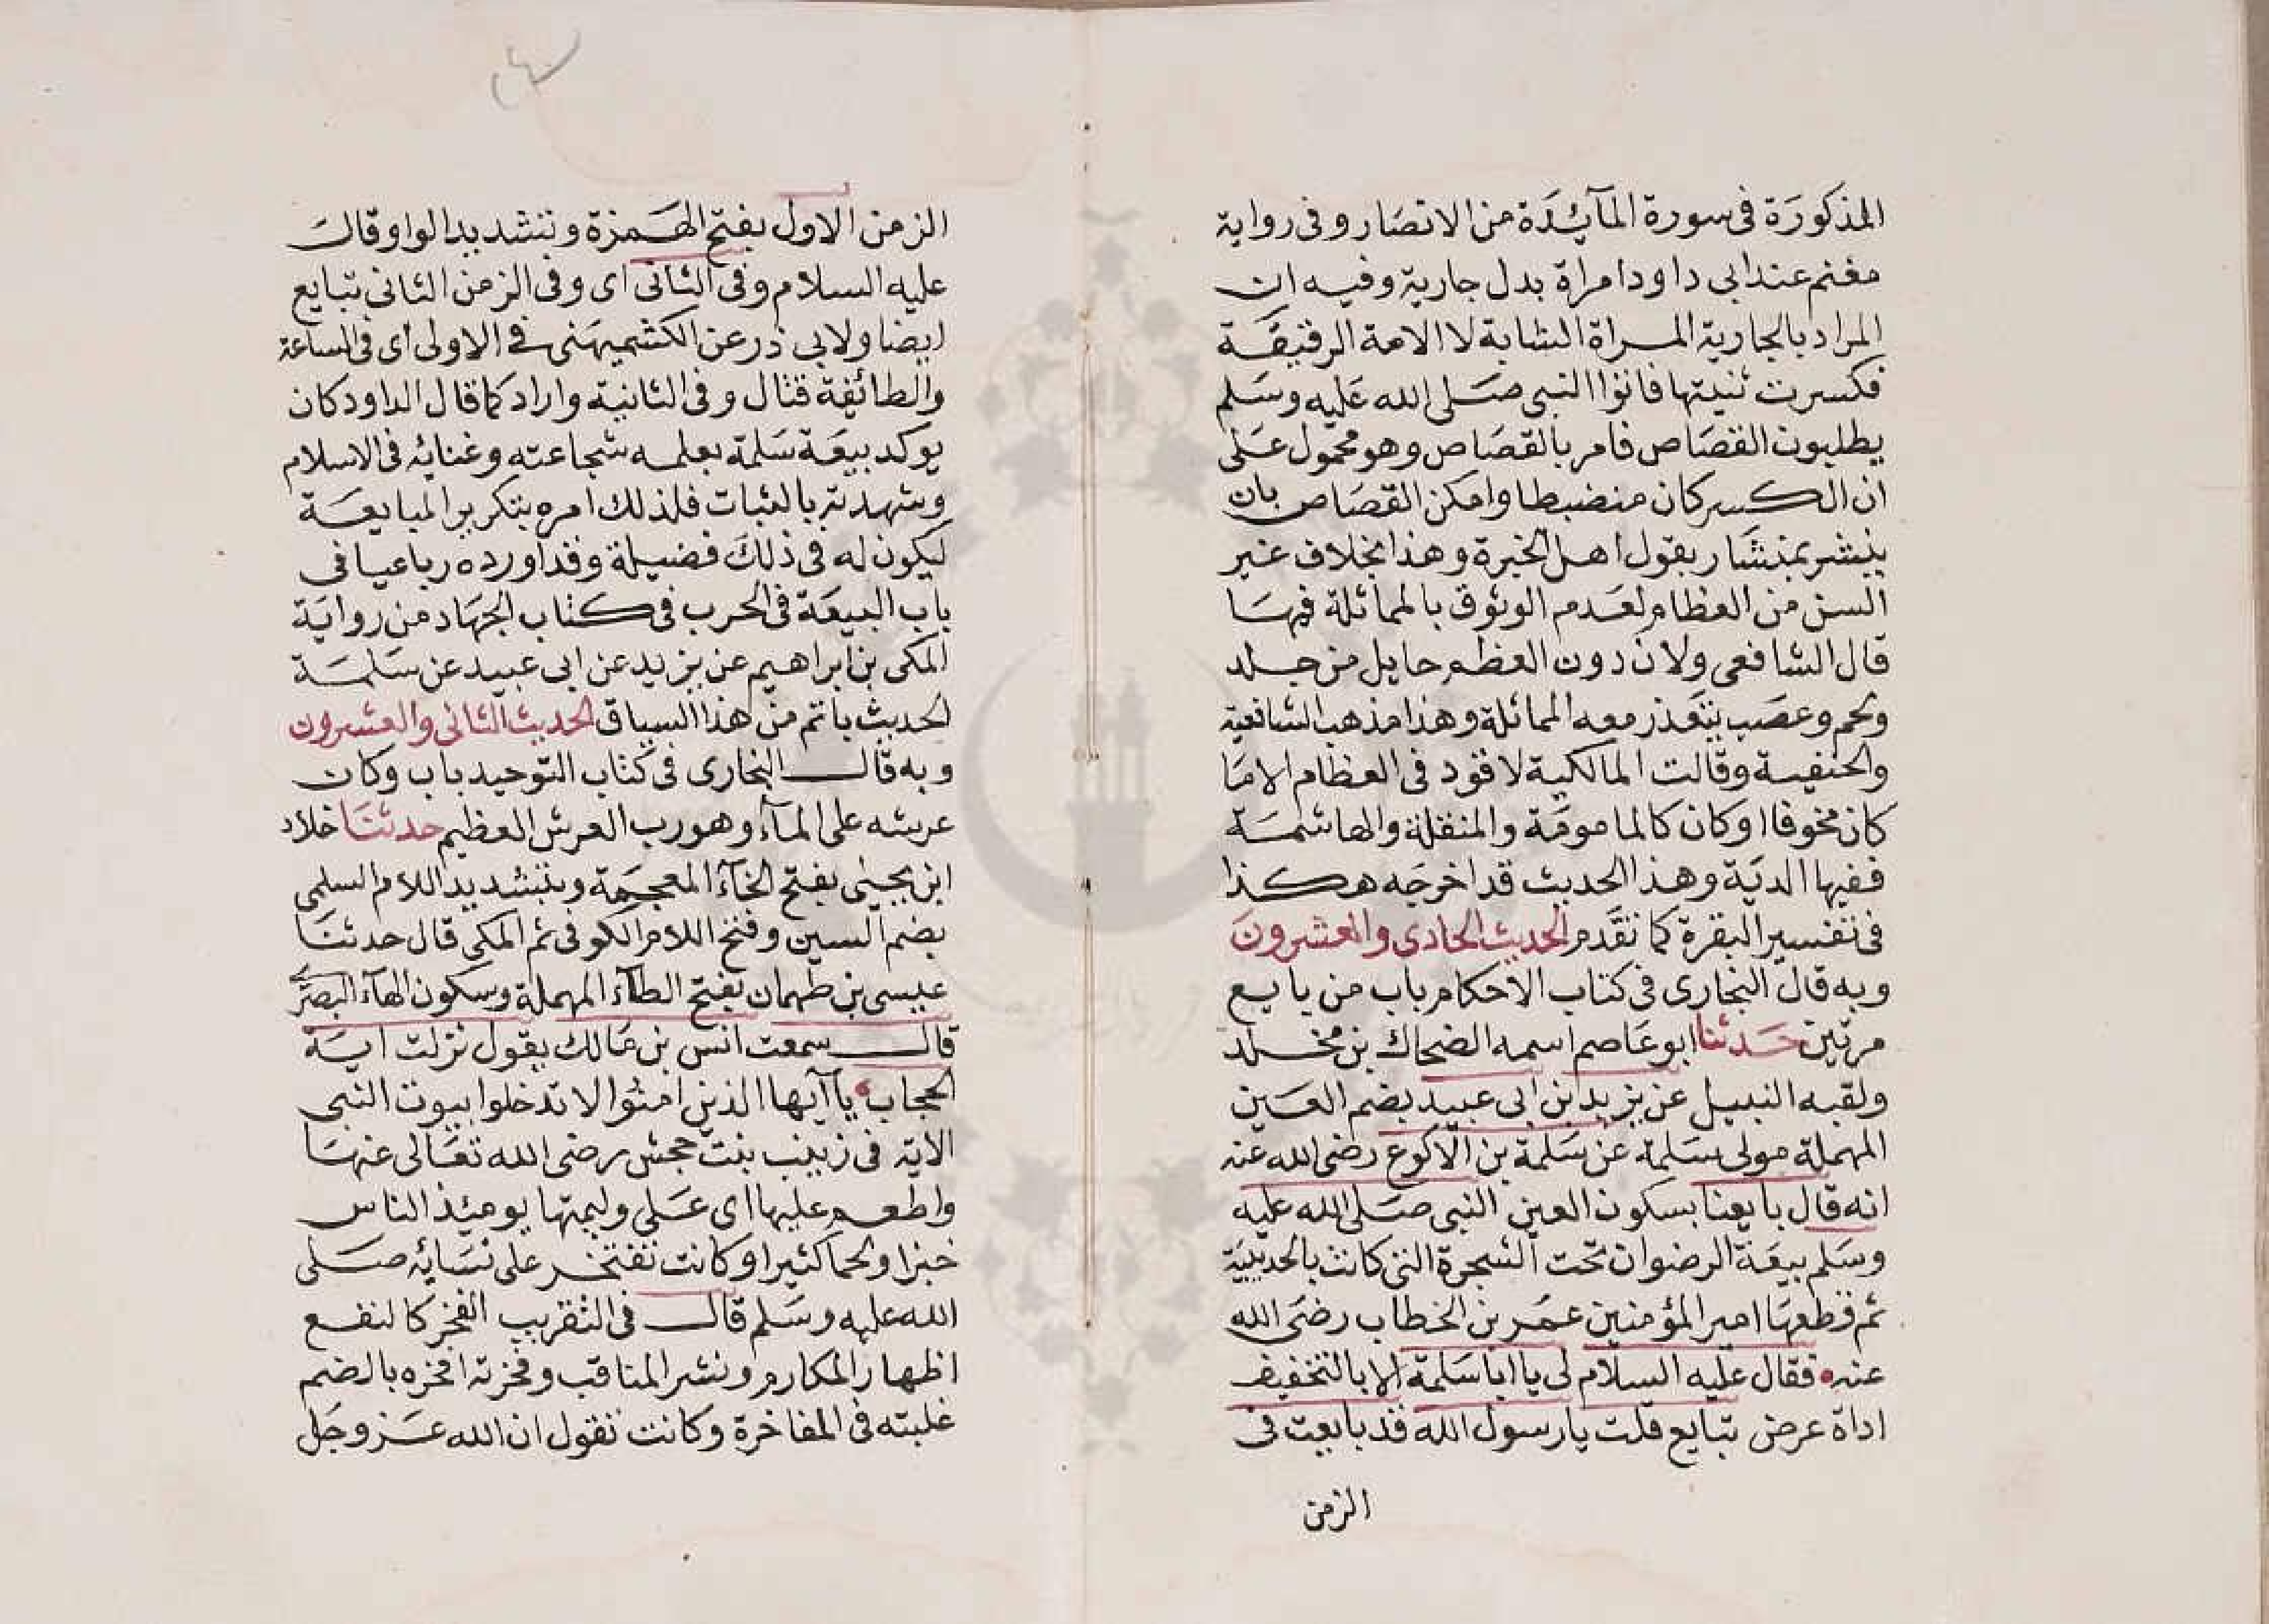 المذكورَة فى سورة المآئدَة من الانصَار وفى رواية
مغنم عند ابى داود امراة بدل جارية وفيه ان
المراد بالجارية المراة الشابة لا الامة الرقيقَة
فكسرت ثنيتها فاتوا النبى صَلى الله عَليه وسَلم
يطلبون القصَاص فامر بالقصَاص وهو محمول عَلى
ان الكسر كان منضبطا وامكن القصَاص بان
ينشر بمنشَار بقول اهل الخبرة وهذا بخلاف غير
السن من العظام لعَدم الوثوق بالمماثلة فيهَا
قال الشافعى ولان دون العظم حايل من جلد
ولحم وعصَب يتعَذر معه المماثلة وهذا مذهب الشافعية
والحنفيسة وقالت المالكية لا قود فى العظام الا مَا
كان مخوفا او كان كالمامومَة والمنقلة والهاشمَة
ففيها الديَة وهذا الحديث قد اخرجَه هكذا
فى تفسير البقرة كما تقَدم الحديث الحادى والعشرونَ
وبه قال البخارى فى كتاب الاحكام باب من بايع
مرتين حَدثنا ابو عَاصم اسمه الضحاك بن مخلد
ولقبه النبيل عن يزيد بن ابى عبيد بضم العَين
المهملة مولى سَلمة عن سَلمة بن الاكوع رضى الله عنه
انه قال بايعنا بسكون العين النبى صَلى الله عليه
وسَلم بيعَة الرضوان تحت الشجرة التى كانت بالحديبية
ثم قطعهَا امير المؤمنين عمَر بن الخطاب رضى الله
عنه فقال عليه السلام لى يا ابا سَلمة الا بالتخفيف
اداة عرض تبايع قلت يا رسول الله قد بايعت فى
الزمن
الزمن الاول بفتح الهَمزة وتشديد الواو وقالَ
عليه السلام وفى الثانى اى وفى الزمن الثانى تبايع
ايضا ولابى ذر عن الكشميهنى فى الاولى اى فى الساعة
والطائفة فقال وفى الثانية واراد كما قال الداود كان
يوكد بيعَة سَلمة بعلمه شجاعته وغنائه فى الاسلام
وشهدته بالثبات فلذلك امره بتكرير المبايعَة
ليكون له فى ذلكَ فضيلة وقد اورده رباعيا فى
باب البيعَة فى الحرب فى كتاب الجهَاد من روايَة
المكى بن ابراهيم عن يزيد عن ابى عبيد عن سَلمَة
الحديث باتم من هذا السياق الحديث الثانى والعشرون
وبه قال البخارى فى كتاب التوحيد باب وكان
عرشه على المآء وهو رب العرش العظيم حدثنَا خلاد
ابن يحيى بفتح الخآء المعجمَة وبتشديد اللام السلمى
بضم السين وفتح اللام الكوفى ثم المكى قال حدثنَا
عيسى بن طهمان بفتح الطآء المهملة وسكون الهآء البصرَّ
قال سمعت انس بن مَالك يقول نزلت ايَة
الحجاب يا آيها الذين امنوا لا تدخلوا بيوت النبى
الاية فى زينب بنت جحش رضى الله تعَالى عنهَا
واطعم عليها اى عَلى وليمتها يومئذ الناس
خبزا ولحما كثيرا وكانت تفتخر على نسَائه صَلى
الله عليه وسَلم قال فى التقريب الفخر كالنفع
اظهار المكارم ونشر المناقب وفخرته افخره بالضم
غلبته فى المفاخرة وكانت تقول ان الله عَز وجَل